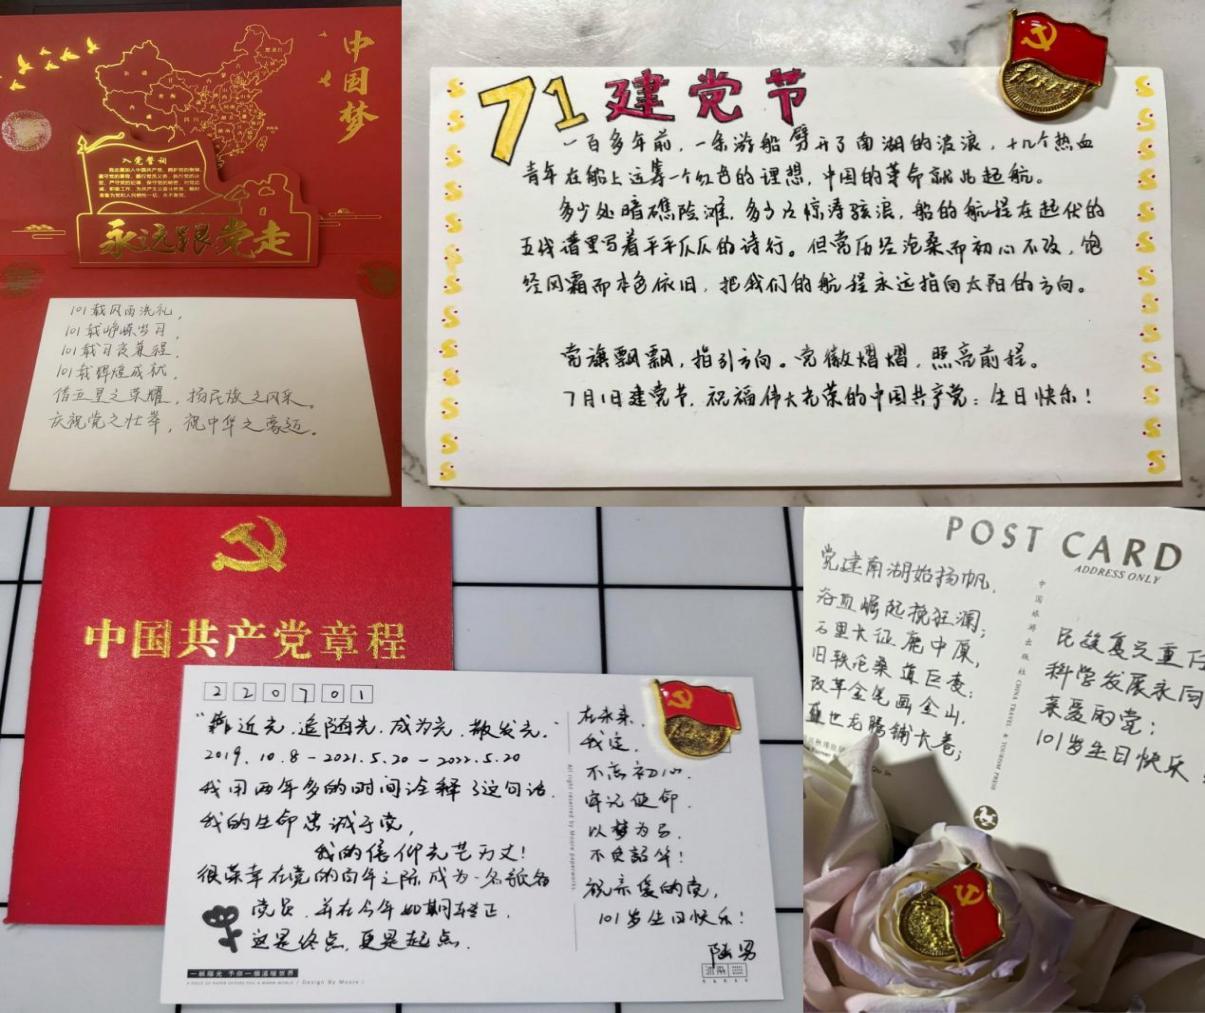 中国梦
入党誓词
永远跟党走
101载风雨洗礼，
101载峥嵘岁月，
101载日夜兼程，
101载辉煌成就，
借五星之荣耀，扬民族之风采。
庆祝党之壮举，祝中华之豪迈。
71 建党节
一百多年前，一条游船劈开了南湖的波浪，十几个热血
青年在船上运筹一个红色的理想，中国的革命就此起航。
多少处暗礁险滩，多少次惊涛骇浪，船的航程在起伏的
五线谱里写着平平仄仄的诗行。但党历经沧桑而初心不改，饱
经风霜而本色依旧，把我们的航程永远指向太阳的方向。
党旗飘飘，指引方向。党徽熠熠，照亮前程。
7月1日建党节，祝福伟大光荣的中国共产党：生日快乐！
中国共产党章程
220701
“靠近光，追随光，成为光，散发光。”
2019.10.8-2021.5.20-2022.5.20
我用两年多的时间诠释了这句话。
我的生命忠诚于党，
我的信仰光芒万丈！
很荣幸在党的百年之际，成为一名预备
党员，并在今年如期转正，
这是终点，更是起点。
A PIECE OF PAPER OFFERS YOU A WARM WORLD / Design By Moore /
All right reserved by Moore paperworks
在未来，
我定，
不忘初心，
牢记使命，
以梦为马，
不负韶华！
祝亲爱的党，
101岁生日快乐！
POST CARD
ADDRESS ONLY
党建南湖始扬帆，
奋起崛起挽狂澜；
万里长征鹿中原，
旧轶沧桑真巨变；
改革金笔画金山，
盛世龙腾铺长卷；
中国旅游出版社 CHINA TRAVEL & TOURISM PRESS
民族复兴重任
科学发展永向
亲爱的党：
101岁生日快乐！